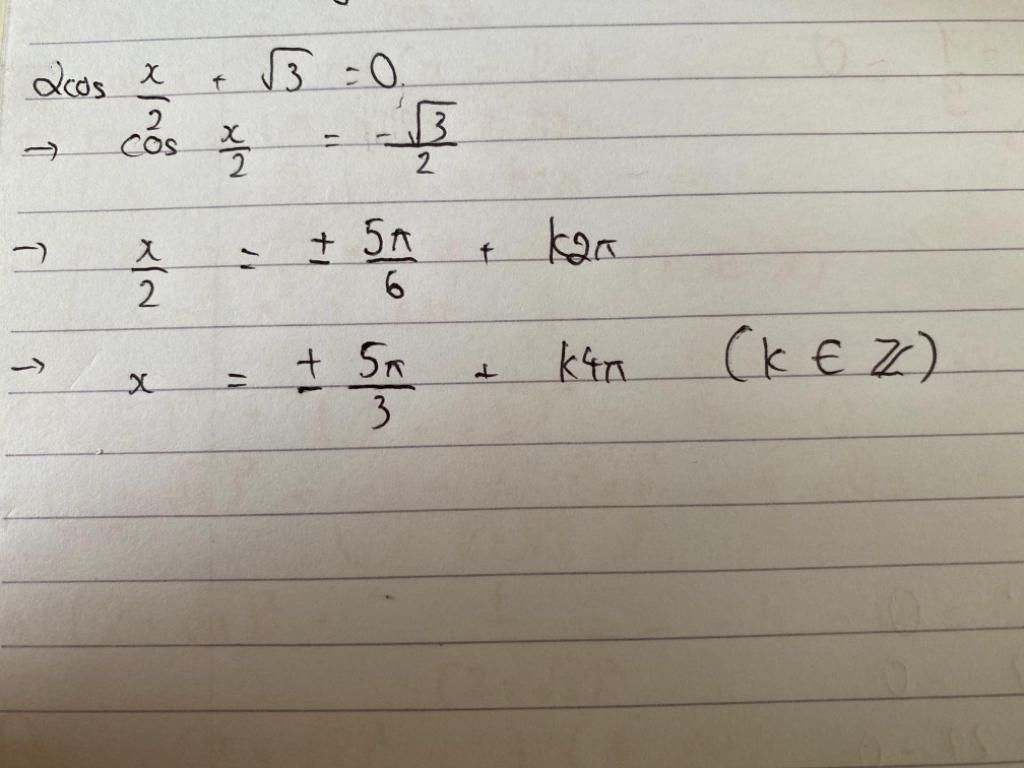 2cos x/2 + √3 = 0
→ cos x/2 = -√3/2
→ x/2 = ± 5π/6 + k2π
→ x = ± 5π/3 + k4π (k ∈ ℤ)